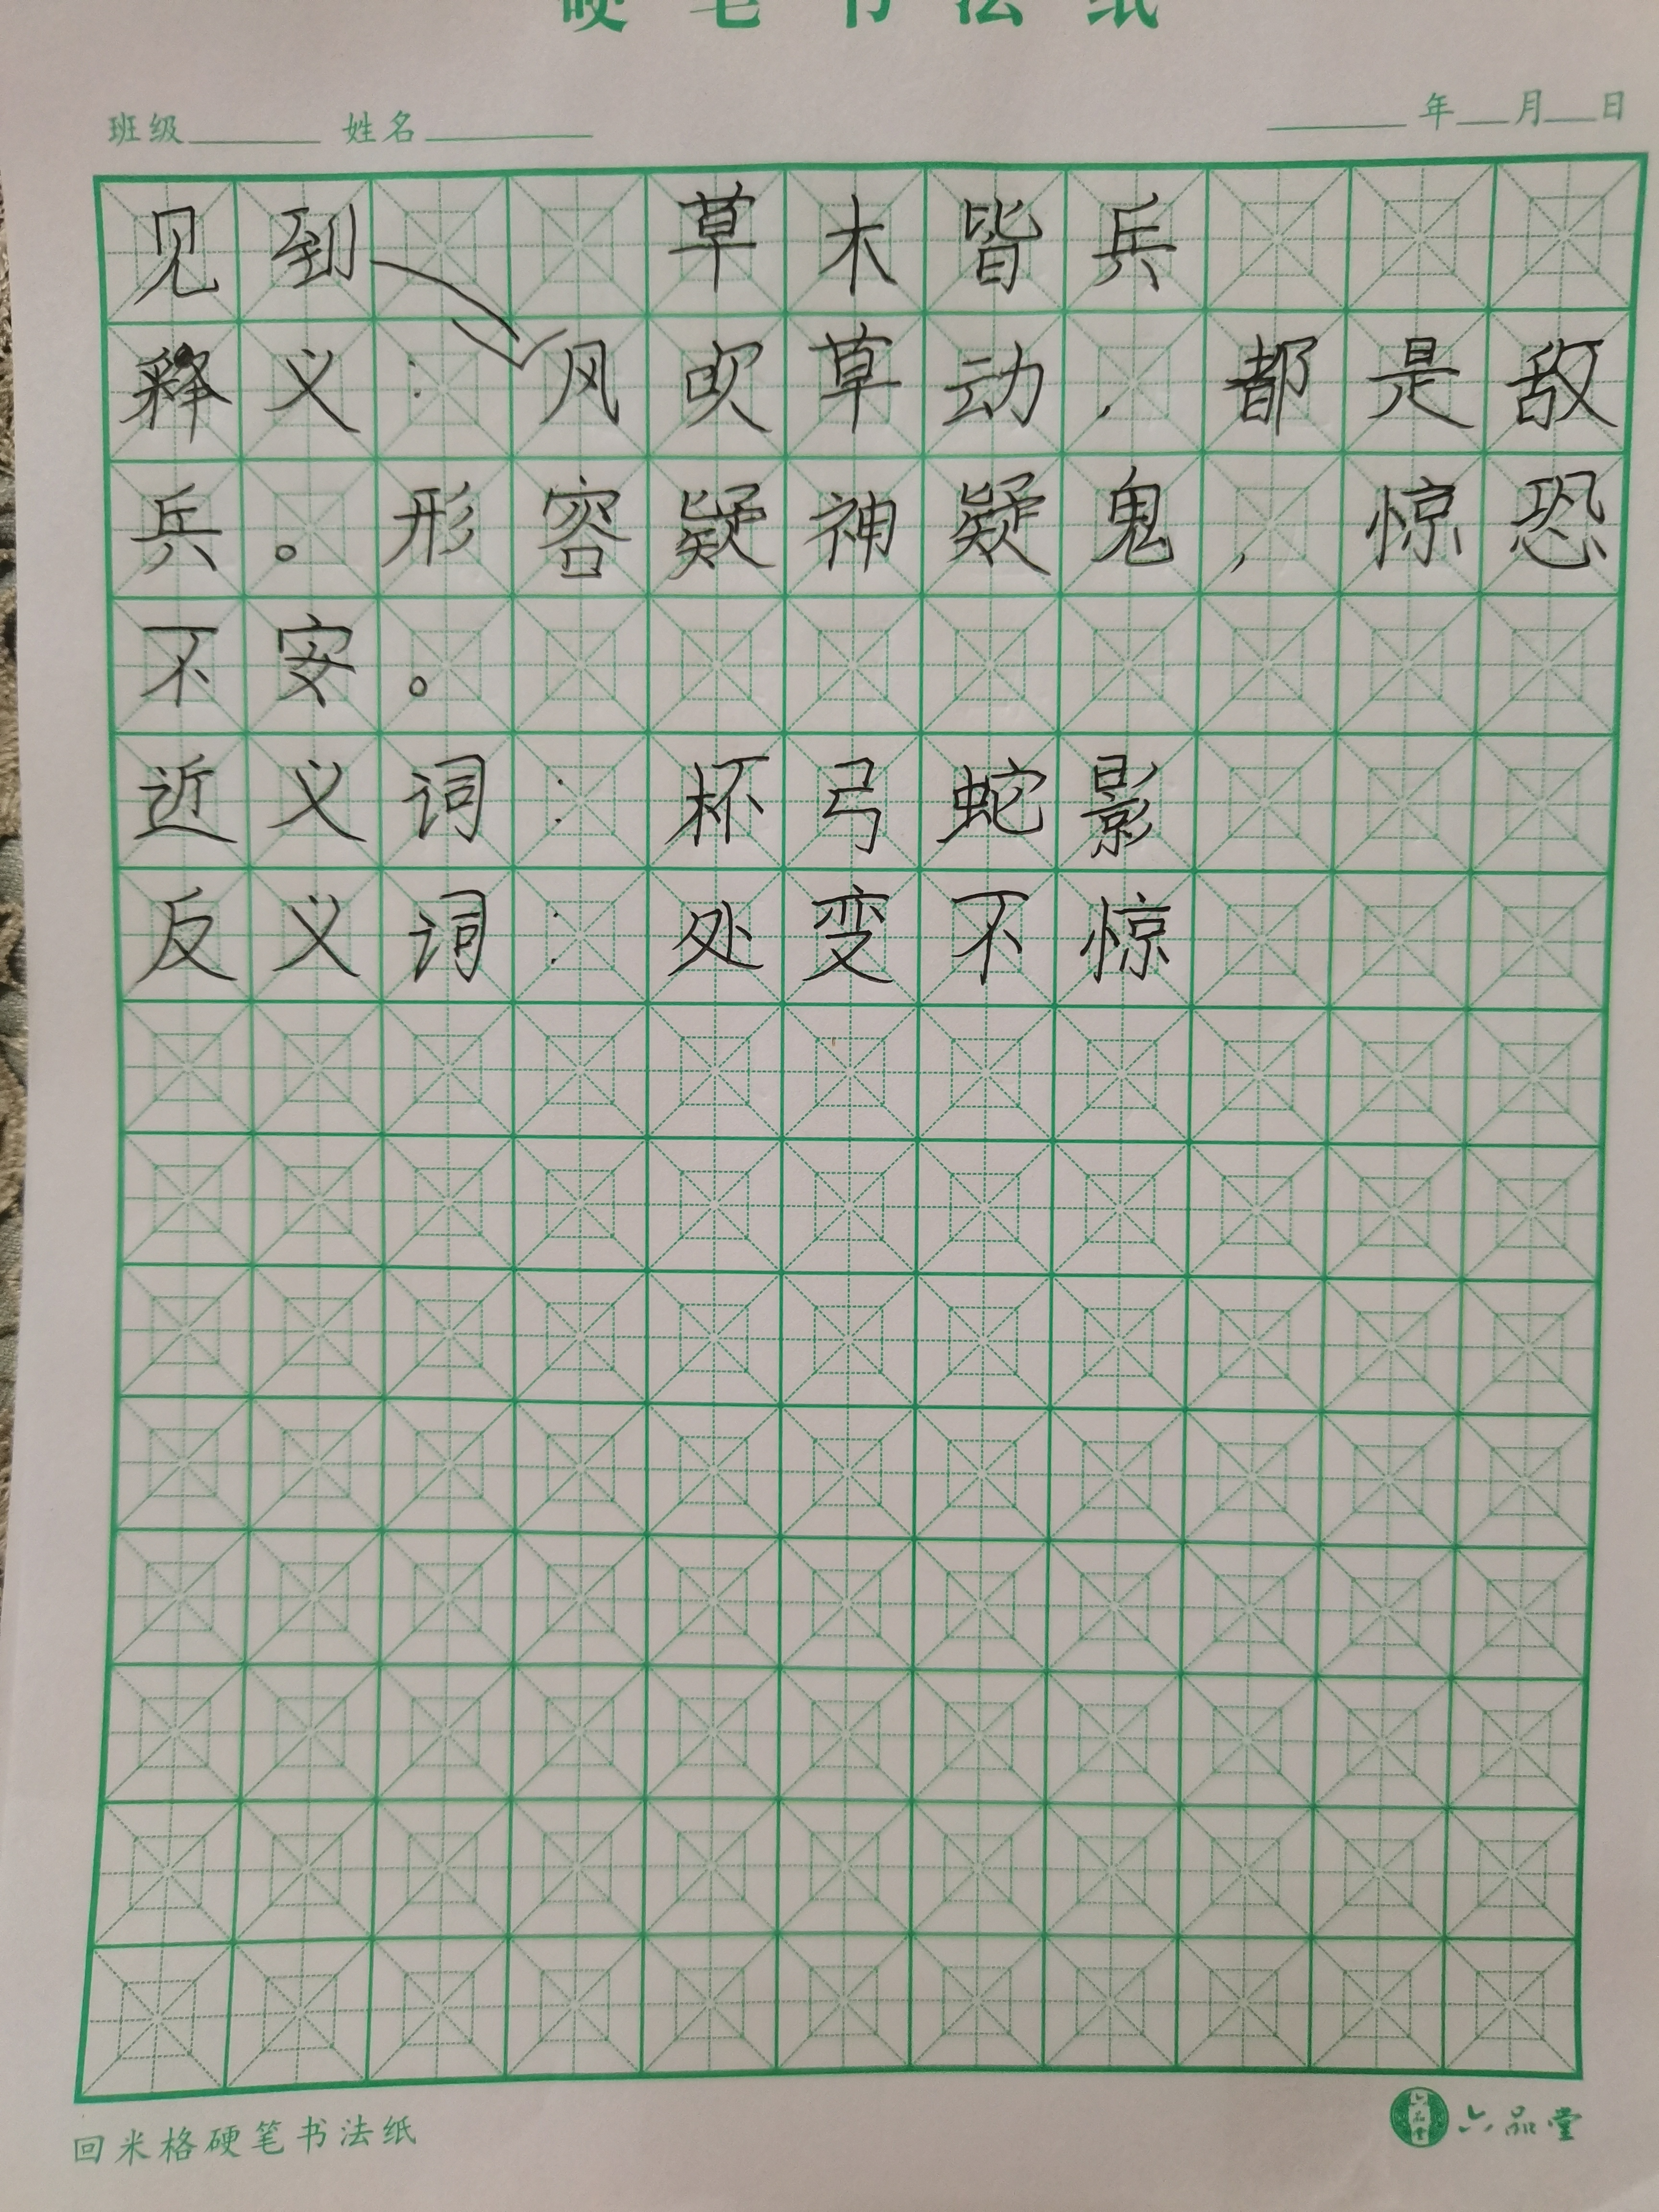 硬笔书法纸
班级 姓名 年 月 日
见到 草木皆兵
释义：风吹草动，都是敌
兵。形容疑神疑鬼，惊恐
不安。
近义词：杯弓蛇影
反义词：处变不惊
回米格硬笔书法纸 六品堂